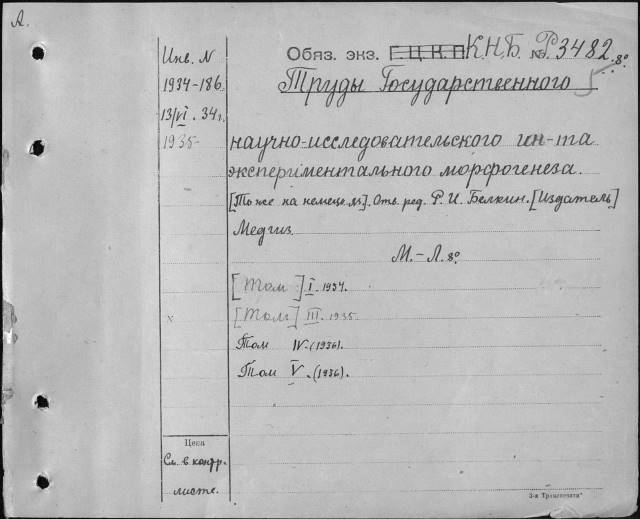 А.
Инв. N
1934-186.
13/VI. 34г.
1935-
Обяз. экз. Г.Ц.К.П К.Н.Б. № Р3482. 8º
Труды Государственного
научно-исследовательского ин-та
экспериментального морфогенеза.
[То же на немецк. яз]. Отв. ред. Р. И. Белкин. [Издатель]
Медгиз.
М.-Л. 8º
[Том] I. 1934.
x [Том] III. 1935.
Том IV. (1936).
Том V. (1936).
Цена
См. в контр.
листе.
3-я Трансвехти"